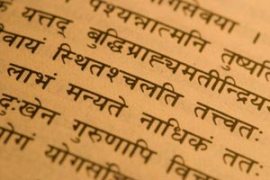 सेवया ।
पश्यन्नात्मनि
यत्तद् बुद्धिग्राह्यमतीन्द्रिय
स्थितश्चलति तत्त्वतः
लाभं मन्यते नाधिकं ततः
दुःखेन गुरुणापि